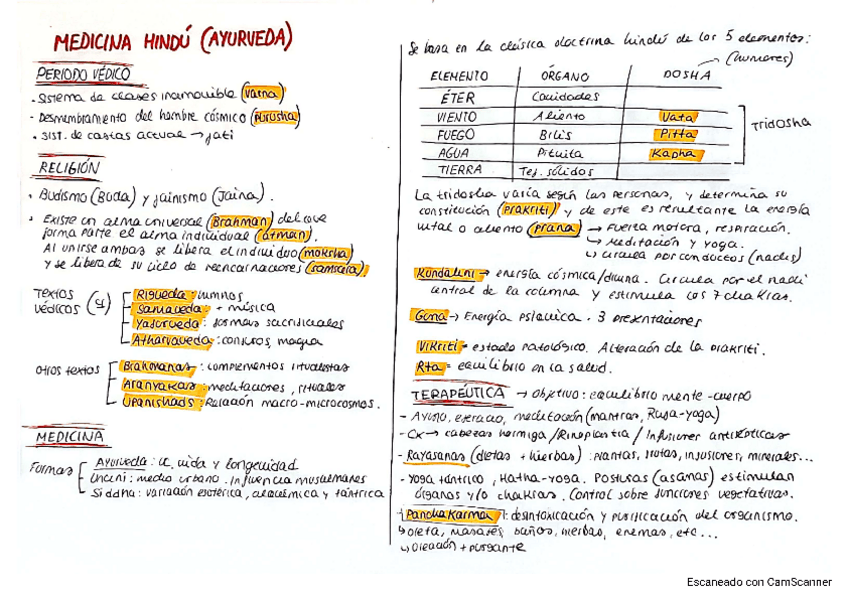 MEDICINA HINDÚ (AYURVEDA)
PERIODO VÉDICO
· Sistema de clases inamovible (varna)
· Desmembramiento del hombre cósmico (purusha)
· Sist. de castas actual → jati
RELIGIÓN
· Budismo (Buda) y jainismo (Jaina).
· Existe un alma universal (Brahman) del que
forma parte el alma individual (atman).
Al unirse ambas se libera el individuo (moksha)
y se libera de su ciclo de reencarnaciones (samsara)
TEXTOS VÉDICOS (4)
Rigveda: himnos
Samaveda: + música
Yajurveda: formas sacrificiales
Atharvaveda: conjuros, magia
OTROS TEXTOS
Brahmanas: complementos ritualistas
Aranyakas: meditaciones, rituales
Upanishads: Relación macro-microcosmos.
MEDICINA
Formas
Ayurveda: vida y longevidad
Unani: medio urbano. Influencia musulmanes
Siddha: variación esotérica, alquémica y tántrica
Se basa en la clásica doctrina hindú de los 5 elementos:
ELEMENTO ÓRGANO DOSHA (humores)
ÉTER Cavidades
VIENTO Aliento Vata
FUEGO Bilis Pitta
AGUA Pituita Kapha
TIERRA Tej. sólidos
Tridosha
La tridosha varía según las personas, y determina su
constitución (prakriti) y de este es resultante la energía
vital o aliento (prana) → Fuerza motora, respiración.
↳ Meditación y yoga.
↳ Circula por conductos (nadis)
Kundalini → energía cósmica/divina. Circula por el nadi
central de la columna y estimula los 7 chakras.
Guna → Energía psíquica. 3 presentaciones
Vikriti = estado patológico. Alteración de la prakriti.
Rta = equilibrio en la salud.
TERAPÉUTICA → Objetivo: equilibrio mente-cuerpo
- Ayuno, ejercicio, meditación (mantras, Raja-yoga)
- Cx → cabezas hormiga / Rinoplastia / Infusiones antisépticas
- Rayasanas (dietas + hierbas): plantas, frutos, infusiones, minerales...
- Yoga tántrico, Hatha-yoga. Posturas (asanas) estimulan
órganos y/o chakras. Control sobre funciones vegetativas.
- Panchakarma: desintoxicación y purificación del organismo.
↳ Dieta, masajes, baños, hierbas, enemas, etc...
↳ Oleación + purgante
Escaneado con CamScanner